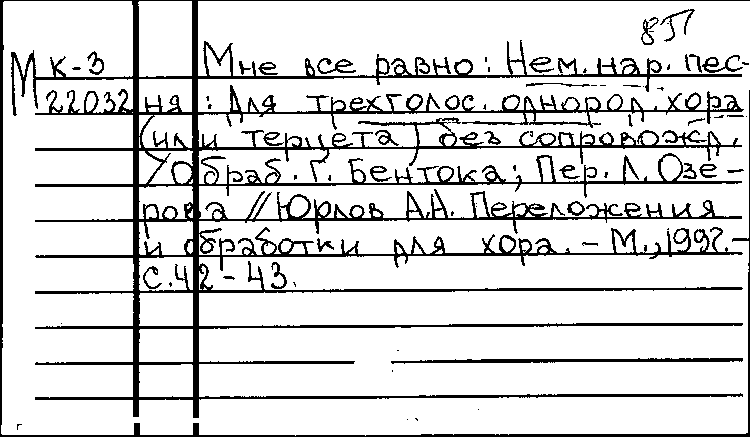 8П
М К-3 Мне все равно: Нем. нар. пес-
22032 ня: Для трехголос. однород. хора
(или терцета) без сопровожд.
/Обраб. Г. Бентока; Пер. Л. Озе-
рова // Юрлов А.А. Переложения
и обработки для хора. - М., 1997. -
С. 42 - 43.